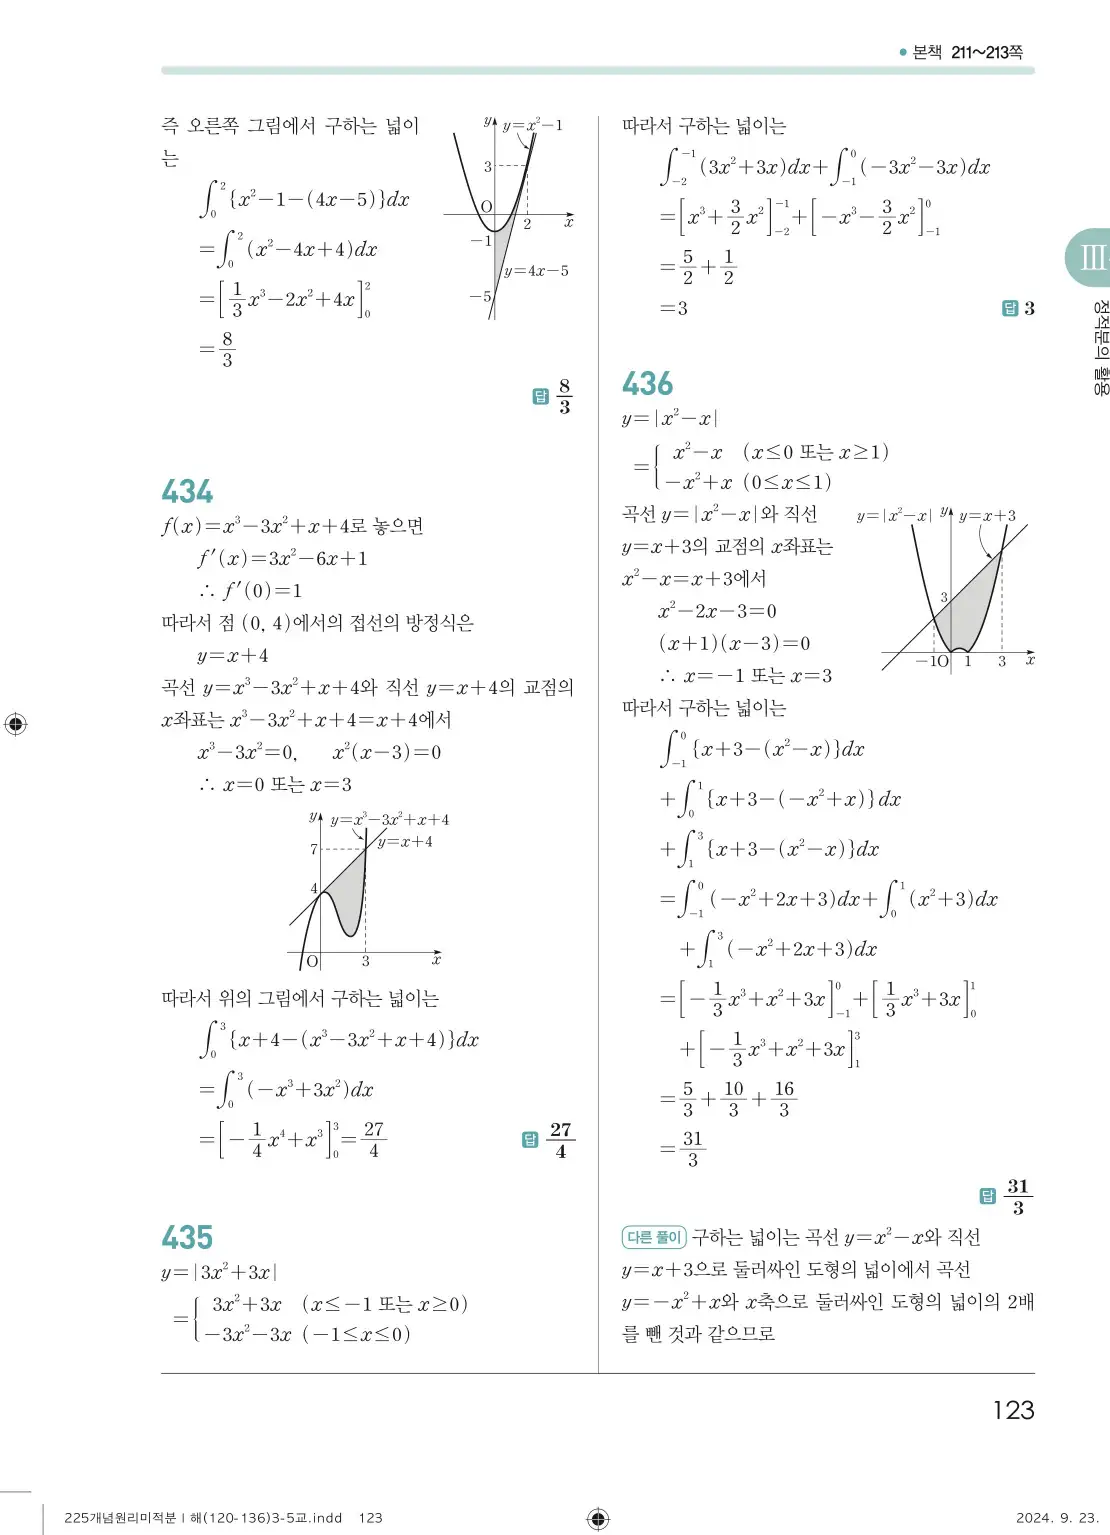 본책 211~213쪽
즉 오른쪽 그림에서 구하는 넓이
는
∫₀² {x²-1-(4x-5)}dx
=∫₀² (x²-4x+4)dx
=[1/3 x³-2x²+4x]₀²
=8/3
y
y=x²-1
3
O
2
x
-1
y=4x-5
-5
답 8/3
434
f(x)=x³-3x²+x+4로 놓으면
f′(x)=3x²-6x+1
∴ f′(0)=1
따라서 점 (0, 4)에서의 접선의 방정식은
y=x+4
곡선 y=x³-3x²+x+4와 직선 y=x+4의 교점의
x좌표는 x³-3x²+x+4=x+4에서
x³-3x²=0, x²(x-3)=0
∴ x=0 또는 x=3
y
y=x³-3x²+x+4
y=x+4
7
4
O
3
x
따라서 위의 그림에서 구하는 넓이는
∫₀³ {x+4-(x³-3x²+x+4)}dx
=∫₀³ (-x³+3x²)dx
=[-1/4 x⁴+x³]₀³=27/4 답 27/4
435
y=|3x²+3x|
={ 3x²+3x (x≤-1 또는 x≥0)
-3x²-3x (-1≤x≤0)
따라서 구하는 넓이는
∫₋₂⁻¹ (3x²+3x)dx+∫₋₁⁰ (-3x²-3x)dx
=[x³+3/2 x²]₋₂⁻¹+[-x³-3/2 x²]₋₁⁰
=5/2+1/2
=3 답 3
436
y=|x²-x|
={ x²-x (x≤0 또는 x≥1)
-x²+x (0≤x≤1)
곡선 y=|x²-x|와 직선
y=x+3의 교점의 x좌표는
x²-x=x+3에서
x²-2x-3=0
(x+1)(x-3)=0
∴ x=-1 또는 x=3
y=|x²-x| y y=x+3
3
-1 O 1 3 x
따라서 구하는 넓이는
∫₋₁⁰ {x+3-(x²-x)}dx
+∫₀¹ {x+3-(-x²+x)}dx
+∫₁³ {x+3-(x²-x)}dx
=∫₋₁⁰ (-x²+2x+3)dx+∫₀¹ (x²+3)dx
+∫₁³ (-x²+2x+3)dx
=[-1/3 x³+x²+3x]₋₁⁰+[1/3 x³+3x]₀¹
+[-1/3 x³+x²+3x]₁³
=5/3+10/3+16/3
=31/3
답 31/3
다른 풀이 구하는 넓이는 곡선 y=x²-x와 직선
y=x+3으로 둘러싸인 도형의 넓이에서 곡선
y=-x²+x와 x축으로 둘러싸인 도형의 넓이의 2배
를 뺀 것과 같으므로
Ⅲ
정적분의 활용
123
225개념원리미적분Ⅰ해(120-136)3-5교.indd 123
2024. 9. 23.